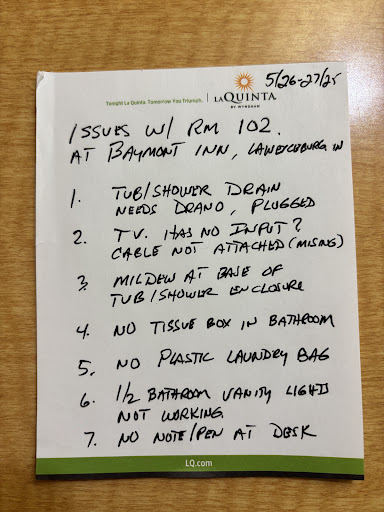 5/26-27/25
Tonight La Quinta. Tomorrow You Triumph.
LAQUINTA
BY WYNDHAM
ISSUES W/ RM 102.
AT BAYMONT INN, LAWENCEBURG IN
1. TUB/SHOWER DRAIN
NEEDS DRANO, PLUGGED
2. T.V. HAS NO INPUT?
CABLE NOT ATTACHED (MISING)
3. MILDEW AT BASE OF
TUB/SHOWER ENCLOSURE
4. NO TISSUE BOX IN BATHROOM
5. NO PLASTIC LAUNDRY BAG
6. 1/2 BATHROOM VANITY LIGHTS
NOT WORKING
7. NO NOTE/PEN AT DESK
LQ.com